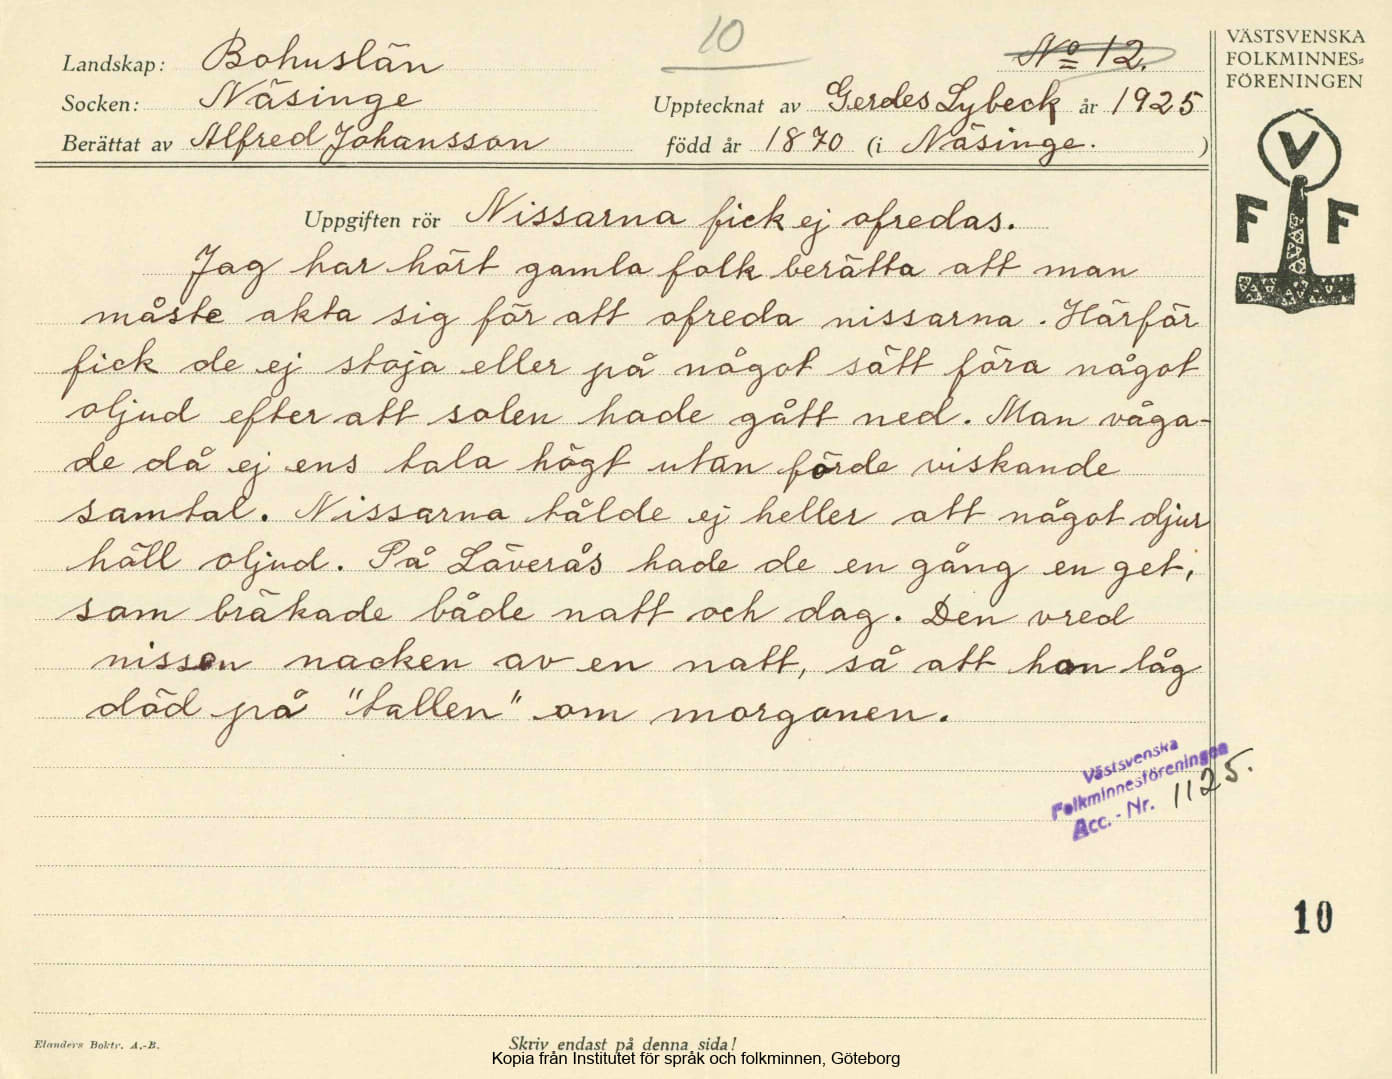 10
Landskap: Bohuslän
Socken: Näsinge
Berättat av Alfred Johansson
No 12.
Upptecknat av Gerdes Lybeck år 1925
född år 1870 (i Näsinge. )
VÄSTSVENSKA
FOLKMINNES=
FÖRENINGEN
V
F F
Uppgiften rör Nissarna fick ej ofredas.
Jag har hört gamla folk berätta att man
måste akta sig för att ofreda nissarna. Härför
fick de ej stoja eller på något sätt föra något
oljud efter att solen hade gått ned. Man våga-
de då ej ens tala högt utan förde viskande
samtal. Nissarna tålde ej heller att något djur
höll oljud. På Löverås hade de en gång en get,
som bräkade både natt och dag. Den vred
nissen nacken av en natt, så att hon låg
död på "tallen" om morgonen.
Västsvenska
Folkminnesföreningen
Acc. - Nr. 1125.
10
Elanders Boktr. A.-B.
Skriv endast på denna sida!
Kopia från Institutet för språk och folkminnen, Göteborg